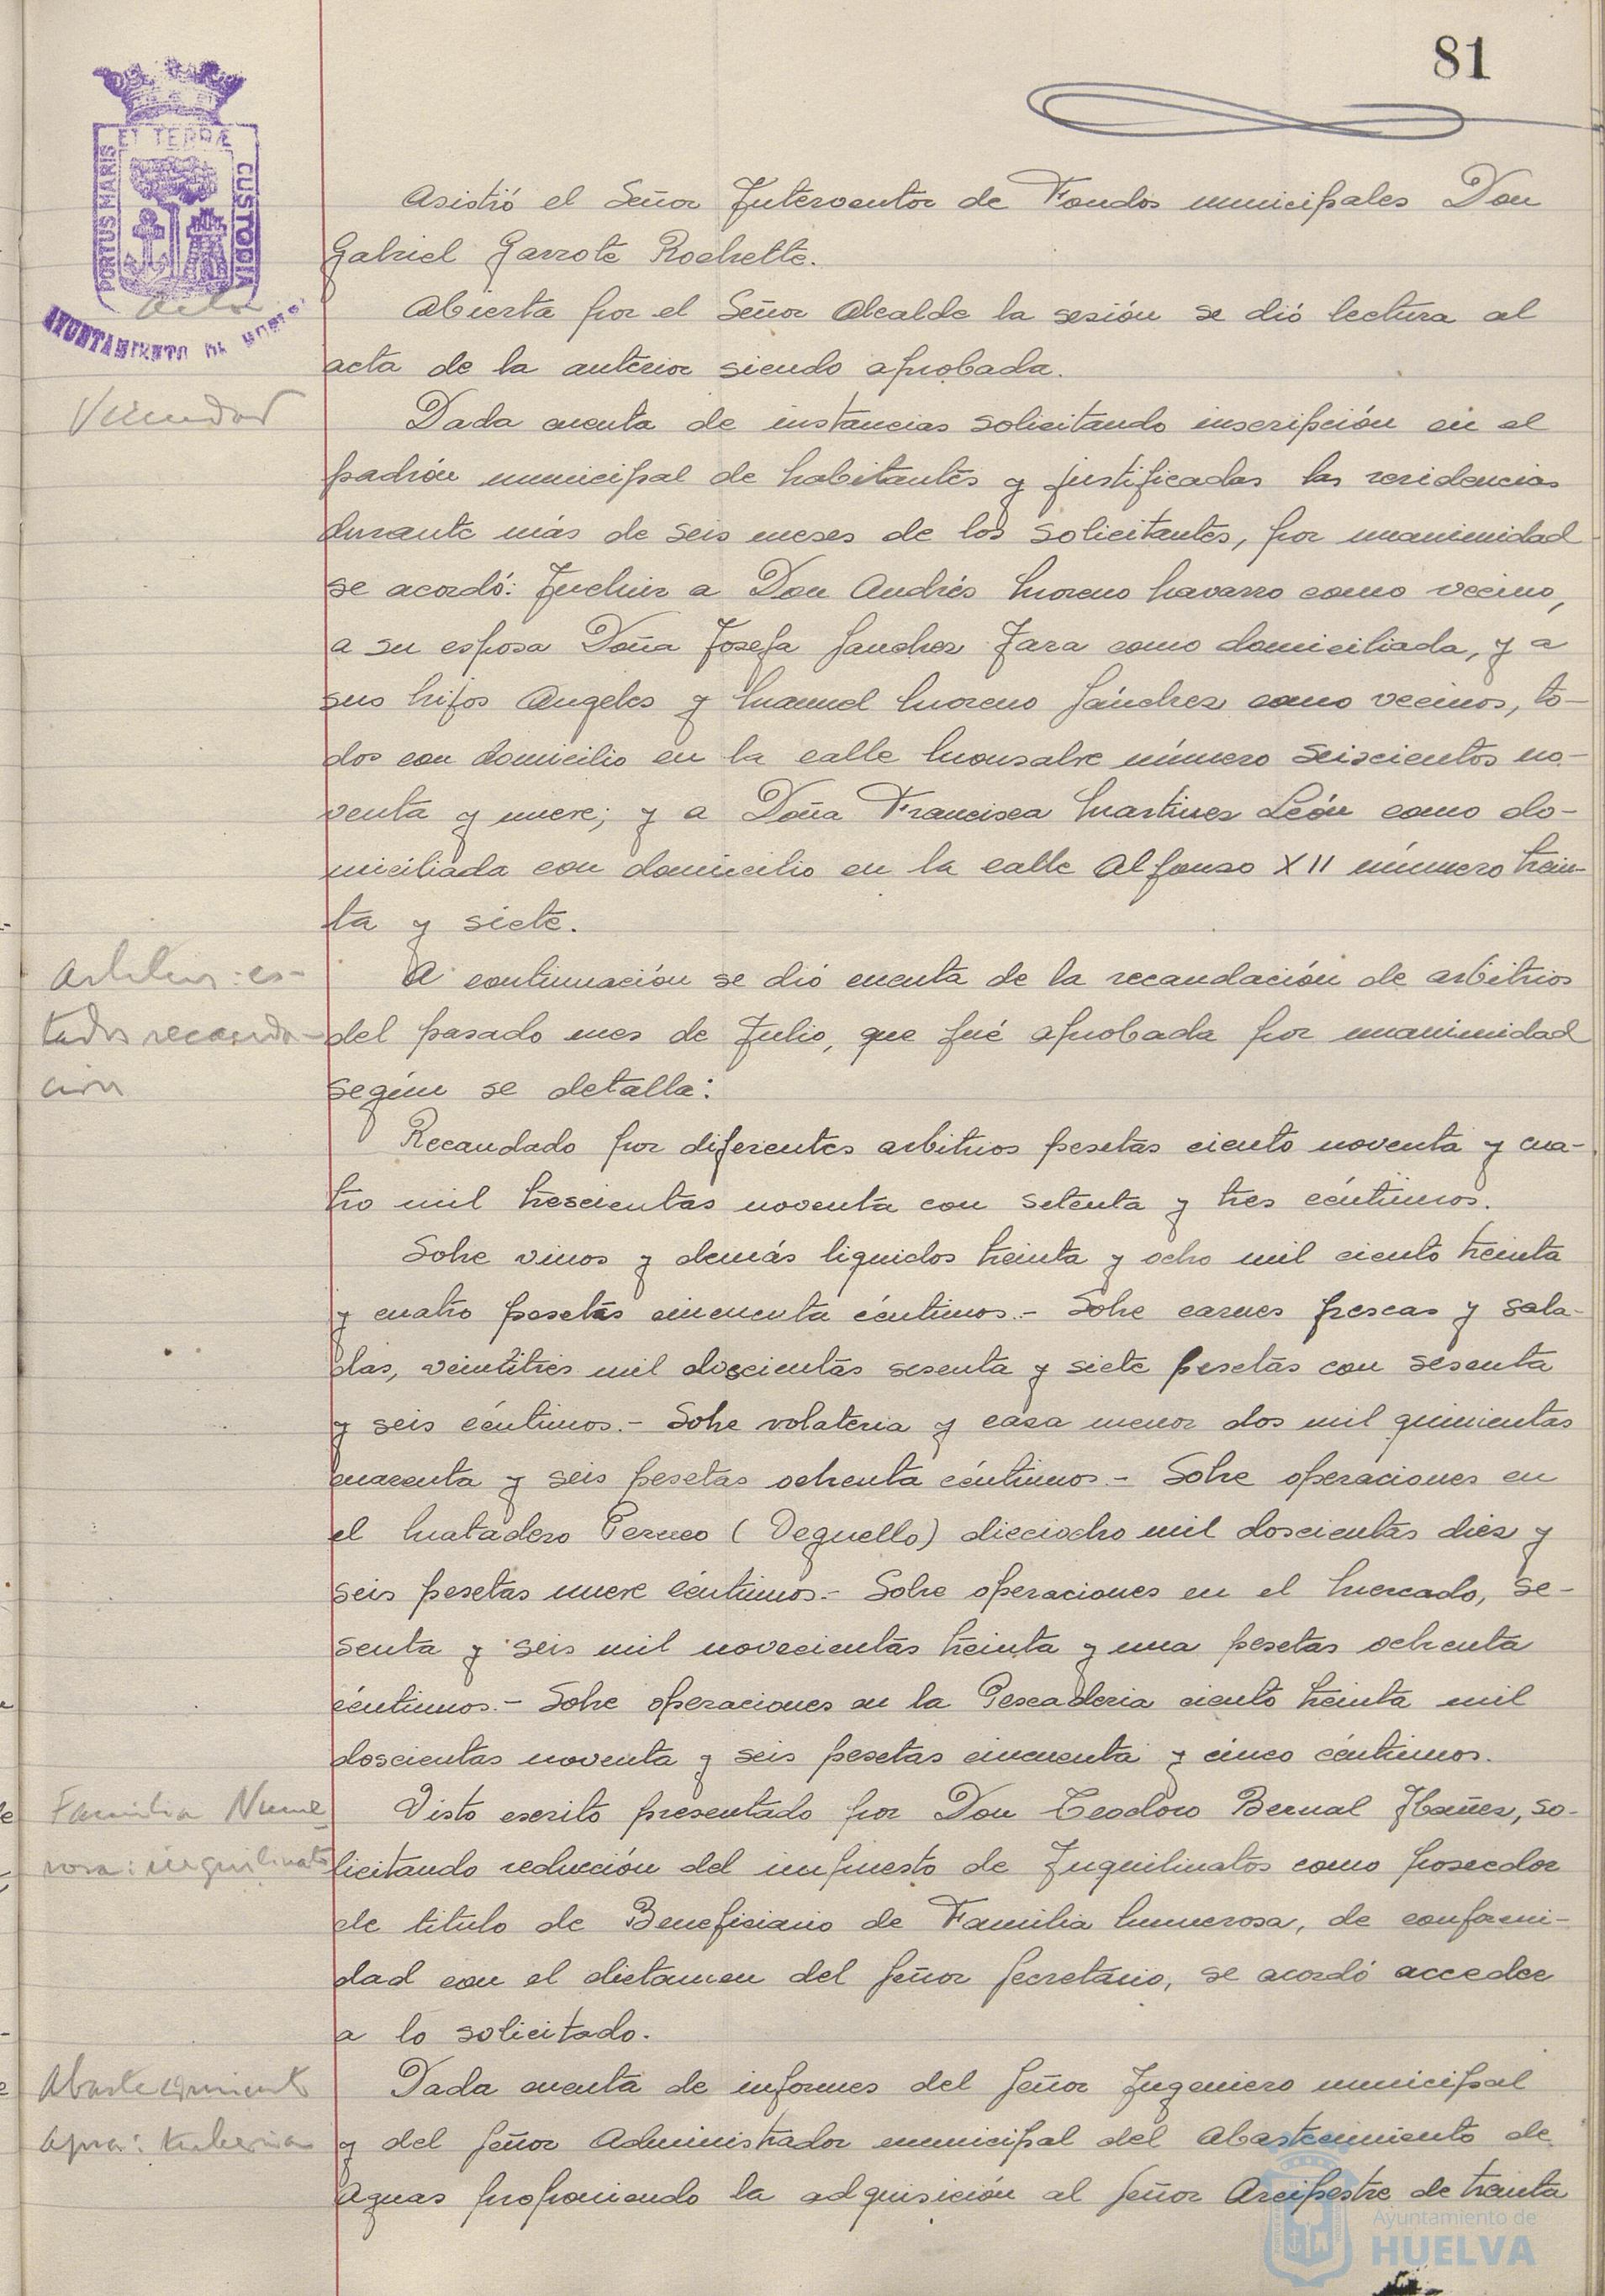 81
PORTUS MARIS ET TERRÆ CUSTODIA
AYUNTAMIENTO DE HUELVA
Asistió el Señor Interventor de Fondos municipales Don
Gabriel Garrote Rochette.
Abierta por el Señor Alcalde la sesión se dió lectura al
acta de la anterior siendo aprobada.
Vecindad
Dada cuenta de instancias solicitando inscripción en el
padrón municipal de habitantes y justificadas las residencias
durante más de seis meses de los solicitantes, por unanimidad
se acordó: Incluir a Don Andrés Moreno Navarro como vecino,
a su esposa Doña Josefa Sanchez Jara como domiciliada, y a
sus hijos Angeles y Manuel Moreno Sánchez como vecinos, to-
dos con domicilio en la calle Monsalve número seiscientos no-
venta y nueve; y a Doña Francisca Martinez León como do-
miciliada con domicilio en la calle Alfonso XII número trein-
ta y siete.
Arbitrios: es-
tados recauda-
ción
A continuación se dió cuenta de la recaudación de arbitrios
del pasado mes de Julio, que fué aprobada por unanimidad
según se detalla:
Recaudado por diferentes arbitrios pesetas ciento noventa y cua-
tro mil trescientas noventa con setenta y tres céntimos.
Sobre vinos y demás liquidos treinta y ocho mil ciento treinta
y cuatro pesetas cincuenta céntimos.- Sobre carnes frescas y sala-
das, veintitres mil doscientas sesenta y siete pesetas con sesenta
y seis céntimos.- Sobre volateria y casa menor dos mil quinientas
cuarenta y seis pesetas ochenta céntimos.- Sobre operaciones en
el Matadero Perneo (Deguello) dieciocho mil doscientas diez y
seis pesetas nueve céntimos.- Sobre operaciones en el Mercado, se-
senta y seis mil novecientas treinta y una pesetas ochenta
céntimos.- Sobre operaciones en la Pescaderia ciento treinta mil
doscientas noventa y seis pesetas cincuenta y cinco céntimos.
Familia Nume
rosa: inquilinato
Visto escrito presentado por Don Teodoro Bernal Ibañez, so-
licitando reducción del impuesto de Inquilinatos como poseedor
de titulo de Beneficiario de Familia Numerosa, de conformi-
dad con el dictamen del Señor Secretario, se acordó acceder
a lo solicitado.
Abastecimiento
Agua: tuberias
Dada cuenta de informes del Señor Ingeniero municipal
y del Señor Administrador municipal del Abastecimiento de
Aguas proponiendo la adquisición al Señor Arcipestre de treinta
Ayuntamiento de
HUELVA